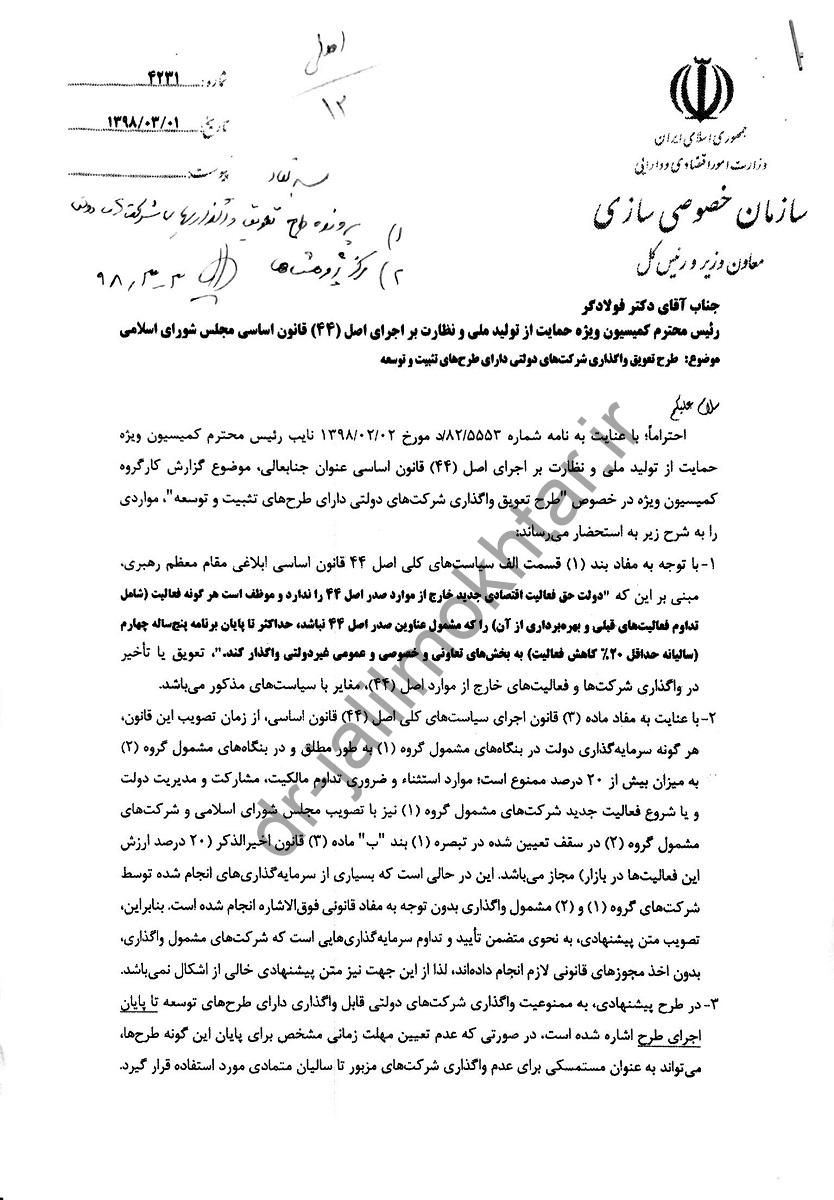 اصلی
۱۳
شماره: ۴۲۳۱
تاریخ: ۱۳۹۸/۰۳/۰۱
پیوست:
جمهوری اسلامی ایران
وزارت امور اقتصادی و دارایی
سازمان خصوصی سازی
معاون وزیر و رئیس کل
۱) پرونده طرح تعویق واگذاریهای شرکتهای دولتی
۲) مرکز پژوهش‌ها ۹۸/۳/۳
جناب آقای دکتر فولادگر
رئیس محترم کمیسیون ویژه حمایت از تولید ملی و نظارت بر اجرای اصل (۴۴) قانون اساسی مجلس شورای اسلامی
موضوع: طرح تعویق واگذاری شرکت‌های دولتی دارای طرح‌های تثبیت و توسعه
سلام علیکم
احتراماً؛ با عنایت به نامه شماره ۸۲/۵۵۵۳/د مورخ ۱۳۹۸/۰۲/۰۲ نایب رئیس محترم کمیسیون ویژه
حمایت از تولید ملی و نظارت بر اجرای اصل (۴۴) قانون اساسی عنوان جنابعالی، موضوع گزارش کارگروه
کمیسیون ویژه در خصوص "طرح تعویق واگذاری شرکت‌های دولتی دارای طرح‌های تثبیت و توسعه"، مواردی
را به شرح زیر به استحضار می‌رساند:
۱- با توجه به مفاد بند (۱) قسمت الف سیاست‌های کلی اصل ۴۴ قانون اساسی ابلاغی مقام معظم رهبری،
مبنی بر این که "دولت حق فعالیت اقتصادی جدید خارج از موارد صدر اصل ۴۴ را ندارد و موظف است هر گونه فعالیت (شامل
تداوم فعالیت‌های قبلی و بهره‌برداری از آن) را که مشمول عناوین صدر اصل ۴۴ نباشد، حداکثر تا پایان برنامه پنج‌ساله چهارم
(سالیانه حداقل ۲۰٪ کاهش فعالیت) به بخش‌های تعاونی و خصوصی و عمومی غیردولتی واگذار کند."، تعویق یا تأخیر
در واگذاری شرکت‌ها و فعالیت‌های خارج از موارد اصل (۴۴)، مغایر با سیاست‌های مذکور می‌باشد.
۲- با عنایت به مفاد ماده (۳) قانون اجرای سیاست‌های کلی اصل (۴۴) قانون اساسی، از زمان تصویب این قانون،
هر گونه سرمایه‌گذاری دولت در بنگاه‌های مشمول گروه (۱) به طور مطلق و در بنگاه‌های مشمول گروه (۲)
به میزان بیش از ۲۰ درصد ممنوع است؛ موارد استثناء و ضروری تداوم مالکیت، مشارکت و مدیریت دولت
و یا شروع فعالیت جدید شرکت‌های مشمول گروه (۱) نیز با تصویب مجلس شورای اسلامی و شرکت‌های
مشمول گروه (۲) در سقف تعیین شده در تبصره (۱) بند "ب" ماده (۳) قانون اخیرالذکر (۲۰ درصد ارزش
این فعالیت‌ها در بازار) مجاز می‌باشد. این در حالی است که بسیاری از سرمایه‌گذاری‌های انجام شده توسط
شرکت‌های گروه (۱) و (۲) مشمول واگذاری بدون توجه به مفاد قانونی فوق‌الاشاره انجام شده است. بنابراین،
تصویب متن پیشنهادی، به نحوی متضمن تأیید و تداوم سرمایه‌گذاری‌هایی است که شرکت‌های مشمول واگذاری،
بدون اخذ مجوزهای قانونی لازم انجام داده‌اند، لذا از این جهت نیز متن پیشنهادی خالی از اشکال نمی‌باشد.
۳- در طرح پیشنهادی، به ممنوعیت واگذاری شرکت‌های دولتی قابل واگذاری دارای طرح‌های توسعه تا پایان
اجرای طرح اشاره شده است، در صورتی که عدم تعیین مهلت زمانی مشخص برای پایان این گونه طرح‌ها،
می‌تواند به عنوان مستمسکی برای عدم واگذاری شرکت‌های مزبور تا سالیان متمادی مورد استفاده قرار گیرد.
dr-jalilmokhtar.ir